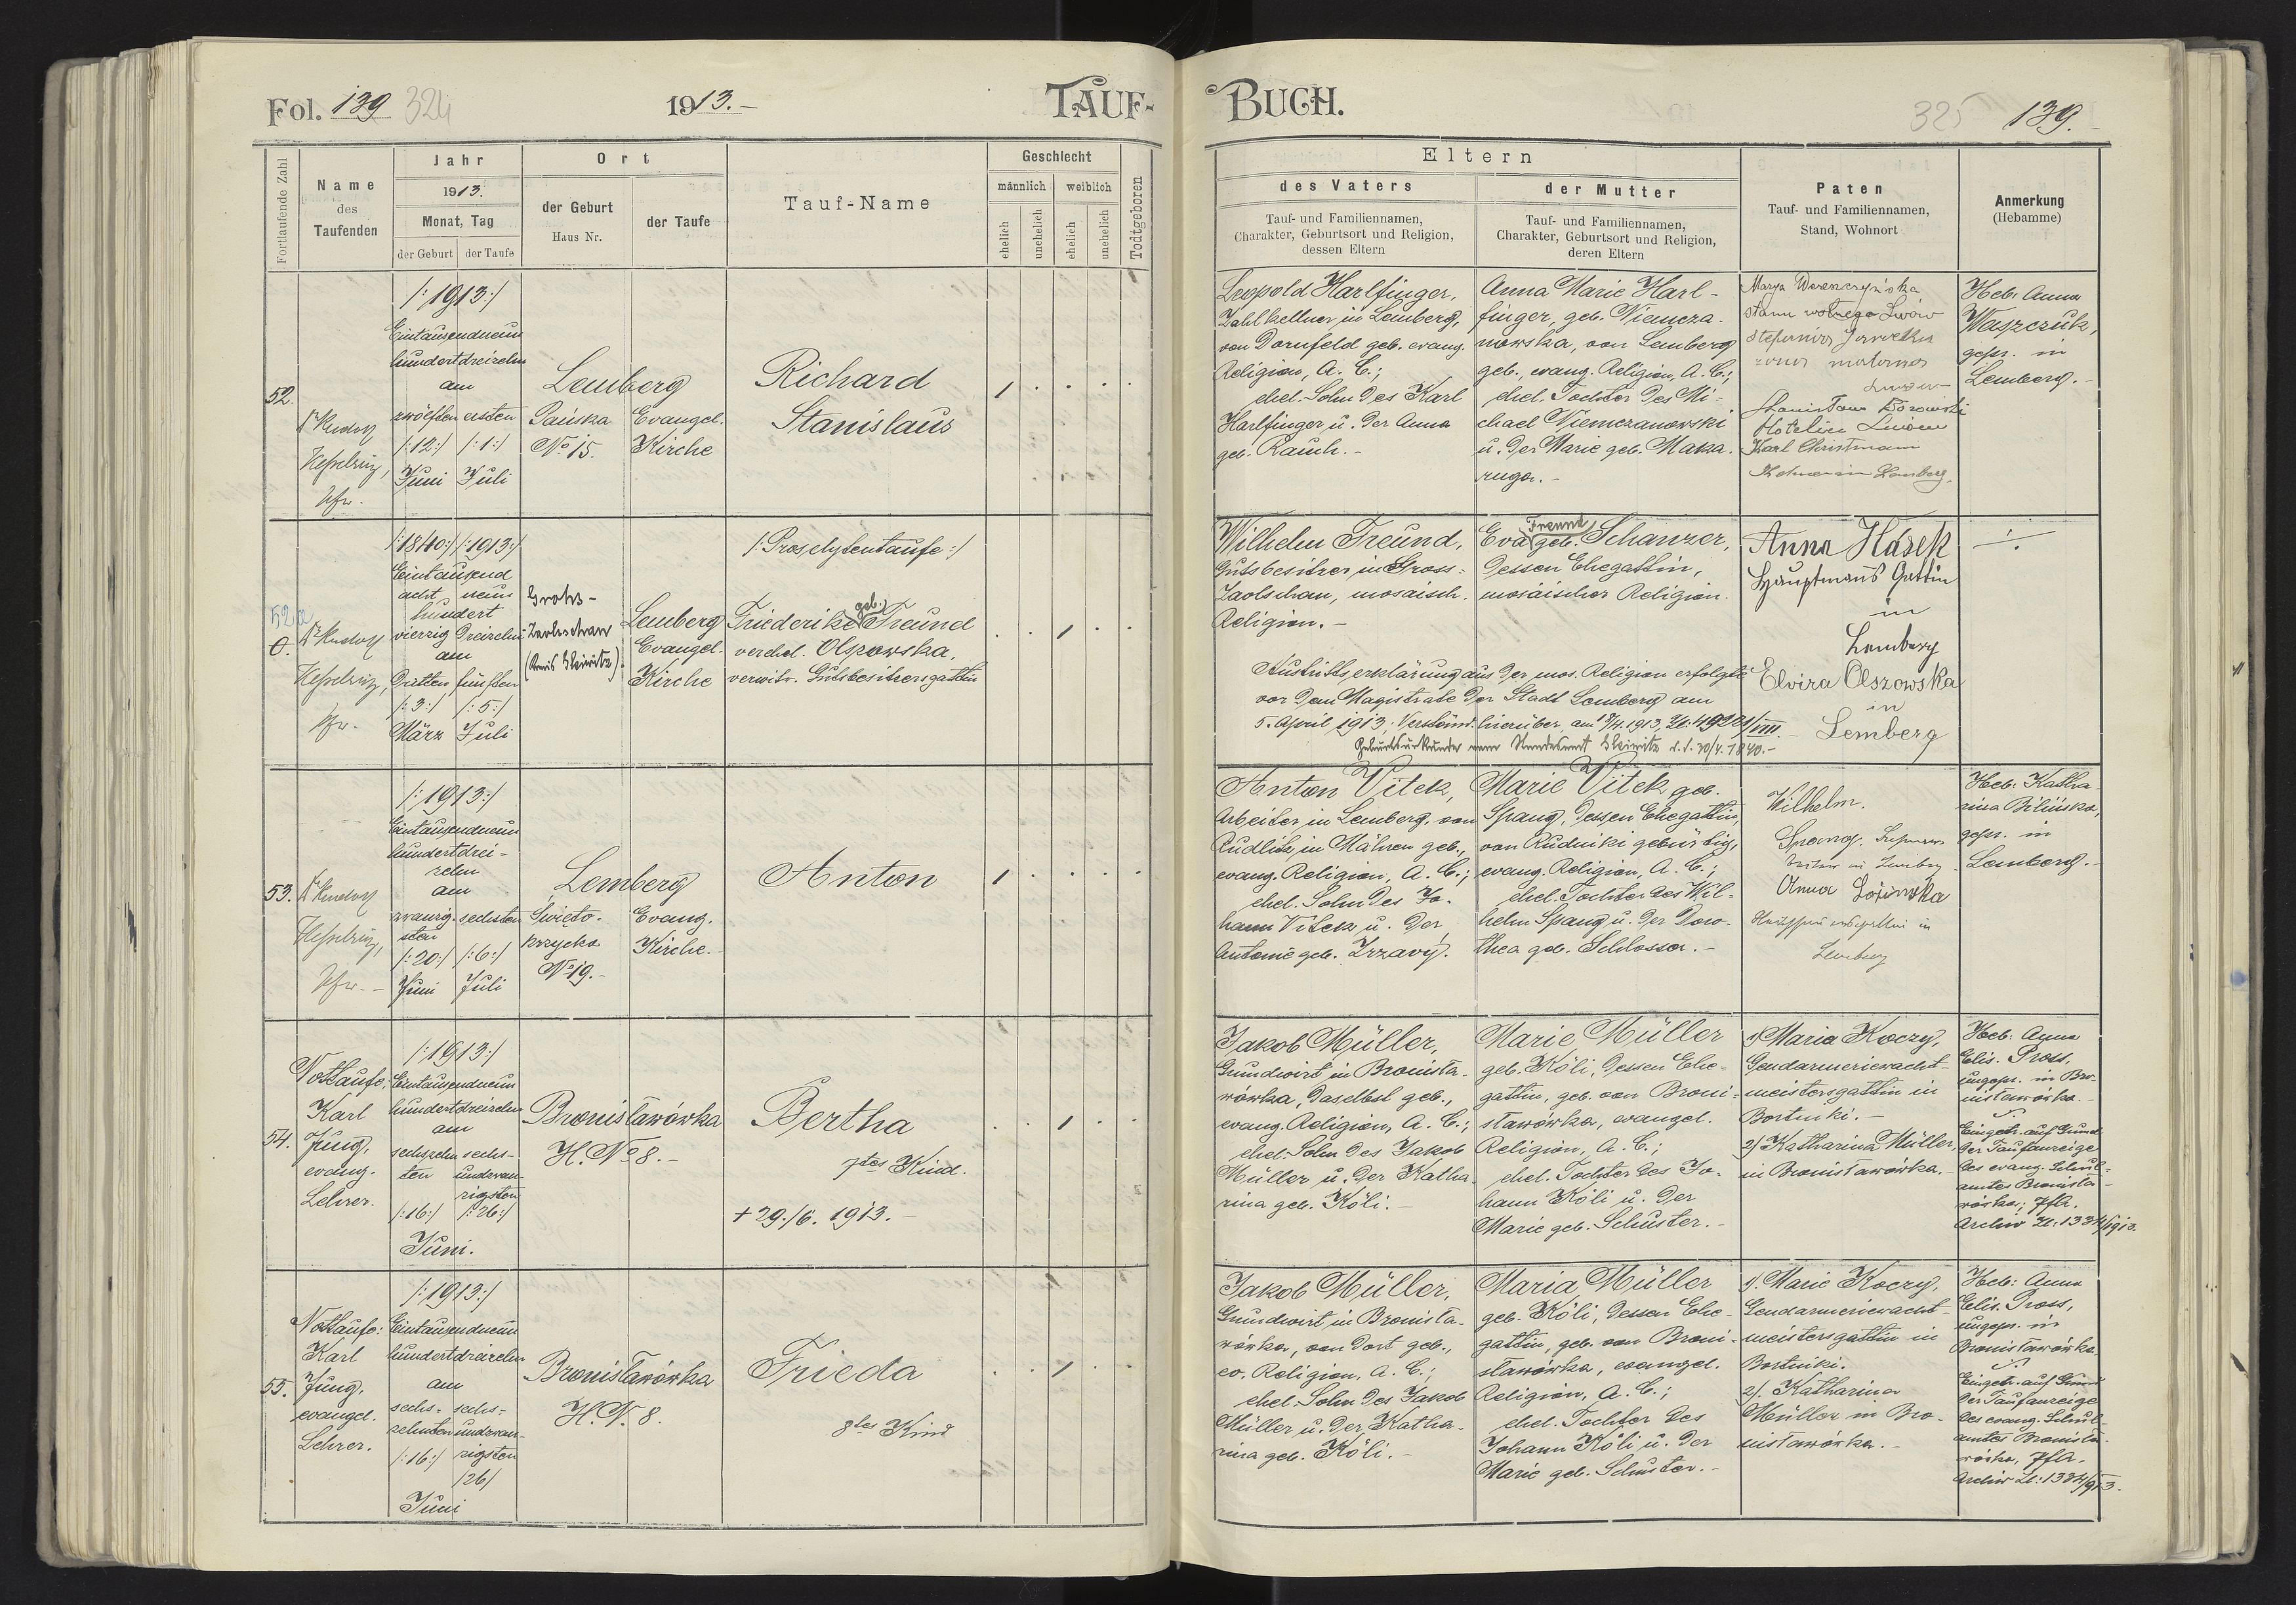 Fol. 139 324
1913.-
TAUF-
BUCH.
325 139.
Fortlaufende Zahl
Name
des
Taufenden
Jahr
1913.
Monat, Tag
der Geburt
der Taufe
Ort
der Geburt
Haus Nr.
der Taufe
Tauf-Name
Geschlecht
männlich
weiblich
ehelich
unehelich
ehelich
unehelich
Todtgeboren
Eltern
des Vaters
Tauf- und Familiennamen,
Charakter, Geburtsort und Religion,
dessen Eltern
der Mutter
Tauf- und Familiennamen,
Charakter, Geburtsort und Religion,
deren Eltern
Paten
Tauf- und Familiennamen,
Stand, Wohnort
Anmerkung
(Hebamme)
52.
Dr Rudolf
Kesselring,
Pfr.
/:1913:/
Eintausendneun
hundertdreizehn
am
zwölften ersten
/:12:/ /:1:/
Juni Juli
Lemberg
Pańska
No 15.
Evangel.
Kirche
Richard
Stanislaus
1
Leopold Harlfinger,
Zahlkellner in Lemberg,
von Dornfeld geb. evang.
Religion, A. C.;
ehel. Sohn des Karl
Harlfinger u. der Anna
geb. Rauch.-
Anna Marie Harl-
finger, geb. Niemcza-
nowska, von Lemberg
geb., evang. Religion, A. C.;
ehel. Tochter des Mi-
chael Niemczanowski
u. der Marie geb. Maka-
ruga.-
Marya
stanu wolnego Lwów
Stefania
żona
Lwów
Stanisław Borowski
Hotelier Lwów
Karl Christmann
in Lemberg.
Heb: Anna
Waszczuk,
gepr. in
Lemberg.-
52a
0.
Dr Rudolf
Kesselring,
Pfr.
/:1840:/ /:1913:/
Eintausend
acht neun
hundert
vierzig dreizehn
am
dritten fünften
/:3:/ /:5:/
März Juli
Grohs-
Zaolschan
(Kreis Gleiwitz)
Lemberg
Evangel.
Kirche
/:Proselytentaufe:/
Friederike geb. Freund
verehel. Olszowska,
verwitw. Gutsbesitzersgattin
1
Wilhelm Freund,
Gutsbesitzer in Gross-
Zaolschan, mosaisch.
Religion.-
Eva Freund geb. Schanzer,
dessen Ehegattin,
mosaischer Religion.
Austrittserklärung aus der mos. Religion erfolgte
vor dem Magistrate der Stadt Lemberg am
5. April 1913; Verständ. hierüber am 18/4. 1913, Zl: 49221/VIII.-
Geburtsurkunde vom Standesamt Gleiwitz d. d. 30/4. 1840.-
Anna Hásek
Hauptmanns Gattin
in
Lemberg
Elvira Olszowska
in
Lemberg
53.
Dr Rudolf
Kesselring,
Pfr.-
/:1913:/
Eintausendneun
hundertdrei-
zehn
am
zwanzig- sechsten
sten
/:20:/ /:6:/
Juni Juli
Lemberg
Święto-
krzyska
No 19.-
Evang.
Kirche.-
Anton
1
Anton Vitek,
Arbeiter in Lemberg, von
Rudlitz in Mähren geb.,
evang. Religion, A. C.;
ehel. Sohn des Jo-
hann Vitek u. der
Antonie geb. Zrzavý.
Marie Vitek geb.
Spang, dessen Ehegattin,
von Rudniki gebürtig,
evang. Religion, A. C.;
ehel. Tochter des Wil-
helm Spang u. der Doro-
thea geb. Schlosser.-
Wilhelm
Spang,
in Lemberg
Anna Łozińska
in
Lemberg
Heb: Katha-
rina Bilińska,
gepr. in
Lemberg.-
54.
Nottaufe:
Karl
Jung,
evang.
Lehrer.
/:1913:/
Eintausendneun
hundertdreizehn
am
sechszehn sechs-
ten undzwan-
zigsten
/:16:/ /:26:/
Juni.
Bronisławówka
H. No 8.-
Bertha
7tes Kind.
+ 29./6. 1913.-
1
Jakob Müller,
Grundwirt in Bronisła-
wówka, daselbst geb.,
evang. Religion, A. C.;
ehel. Sohn des Jakob
Müller u. der Katha-
rina geb. Köli.-
Marie Müller
geb. Köli, dessen Ehe-
gattin, geb. von Broni-
sławówka, evangel.
Religion, A. C.;
ehel. Tochter des Jo-
hann Köli u. der
Marie geb. Schuster.-
1) Maria Koczy,
Gendarmeriewacht-
meistersgattin in
Bortniki.-
2) Katharina Müller,
in Bronisławówka.-
Heb: Anna
Elis. Pross,
ungepr. in Bro-
nisławówka.-
Eingetr. auf Grund
der Taufanzeige
des evang. Schul-
amtes Bronisła-
wówka; Pfr.
Archiv Zl: 1384/1913.
55.
Nottaufe:
Karl
Jung,
evangel.
Lehrer.
/:1913:/
Eintausendneun
hundertdreizehn
am
sechs- sechs-
zehnten undzwan-
/:16:/ zigsten
/26/
Juni
Bronisławówka
H. No 8.
Frieda
8tes Kind
1
Jakob Müller,
Grundwirt in Bronisła-
wówka, von dort geb.,
ev. Religion, A. C.;
ehel. Sohn des Jakob
Müller u. der Katha-
rina geb. Köli.-
Maria Müller
geb. Köli, dessen Ehe-
gattin, geb. von Broni-
sławówka, evangel.
Religion, A. C.;
ehel. Tochter des
Johann Köli u. der
Marie geb. Schuster.-
1/. Marie Koczy,
Gendarmeriewacht-
meistersgattin in
Bortniki.
2/. Katharina
Müller in Bro-
nisławówka.-
Heb: Anna
Elis. Pross,
ungepr. in
Bronisławówka
Eingetr. auf Grund
der Taufanzeige
des evang. Schul-
amtes Bronisła-
wówka, Pfr.
Archiv Zl: 1384/913.